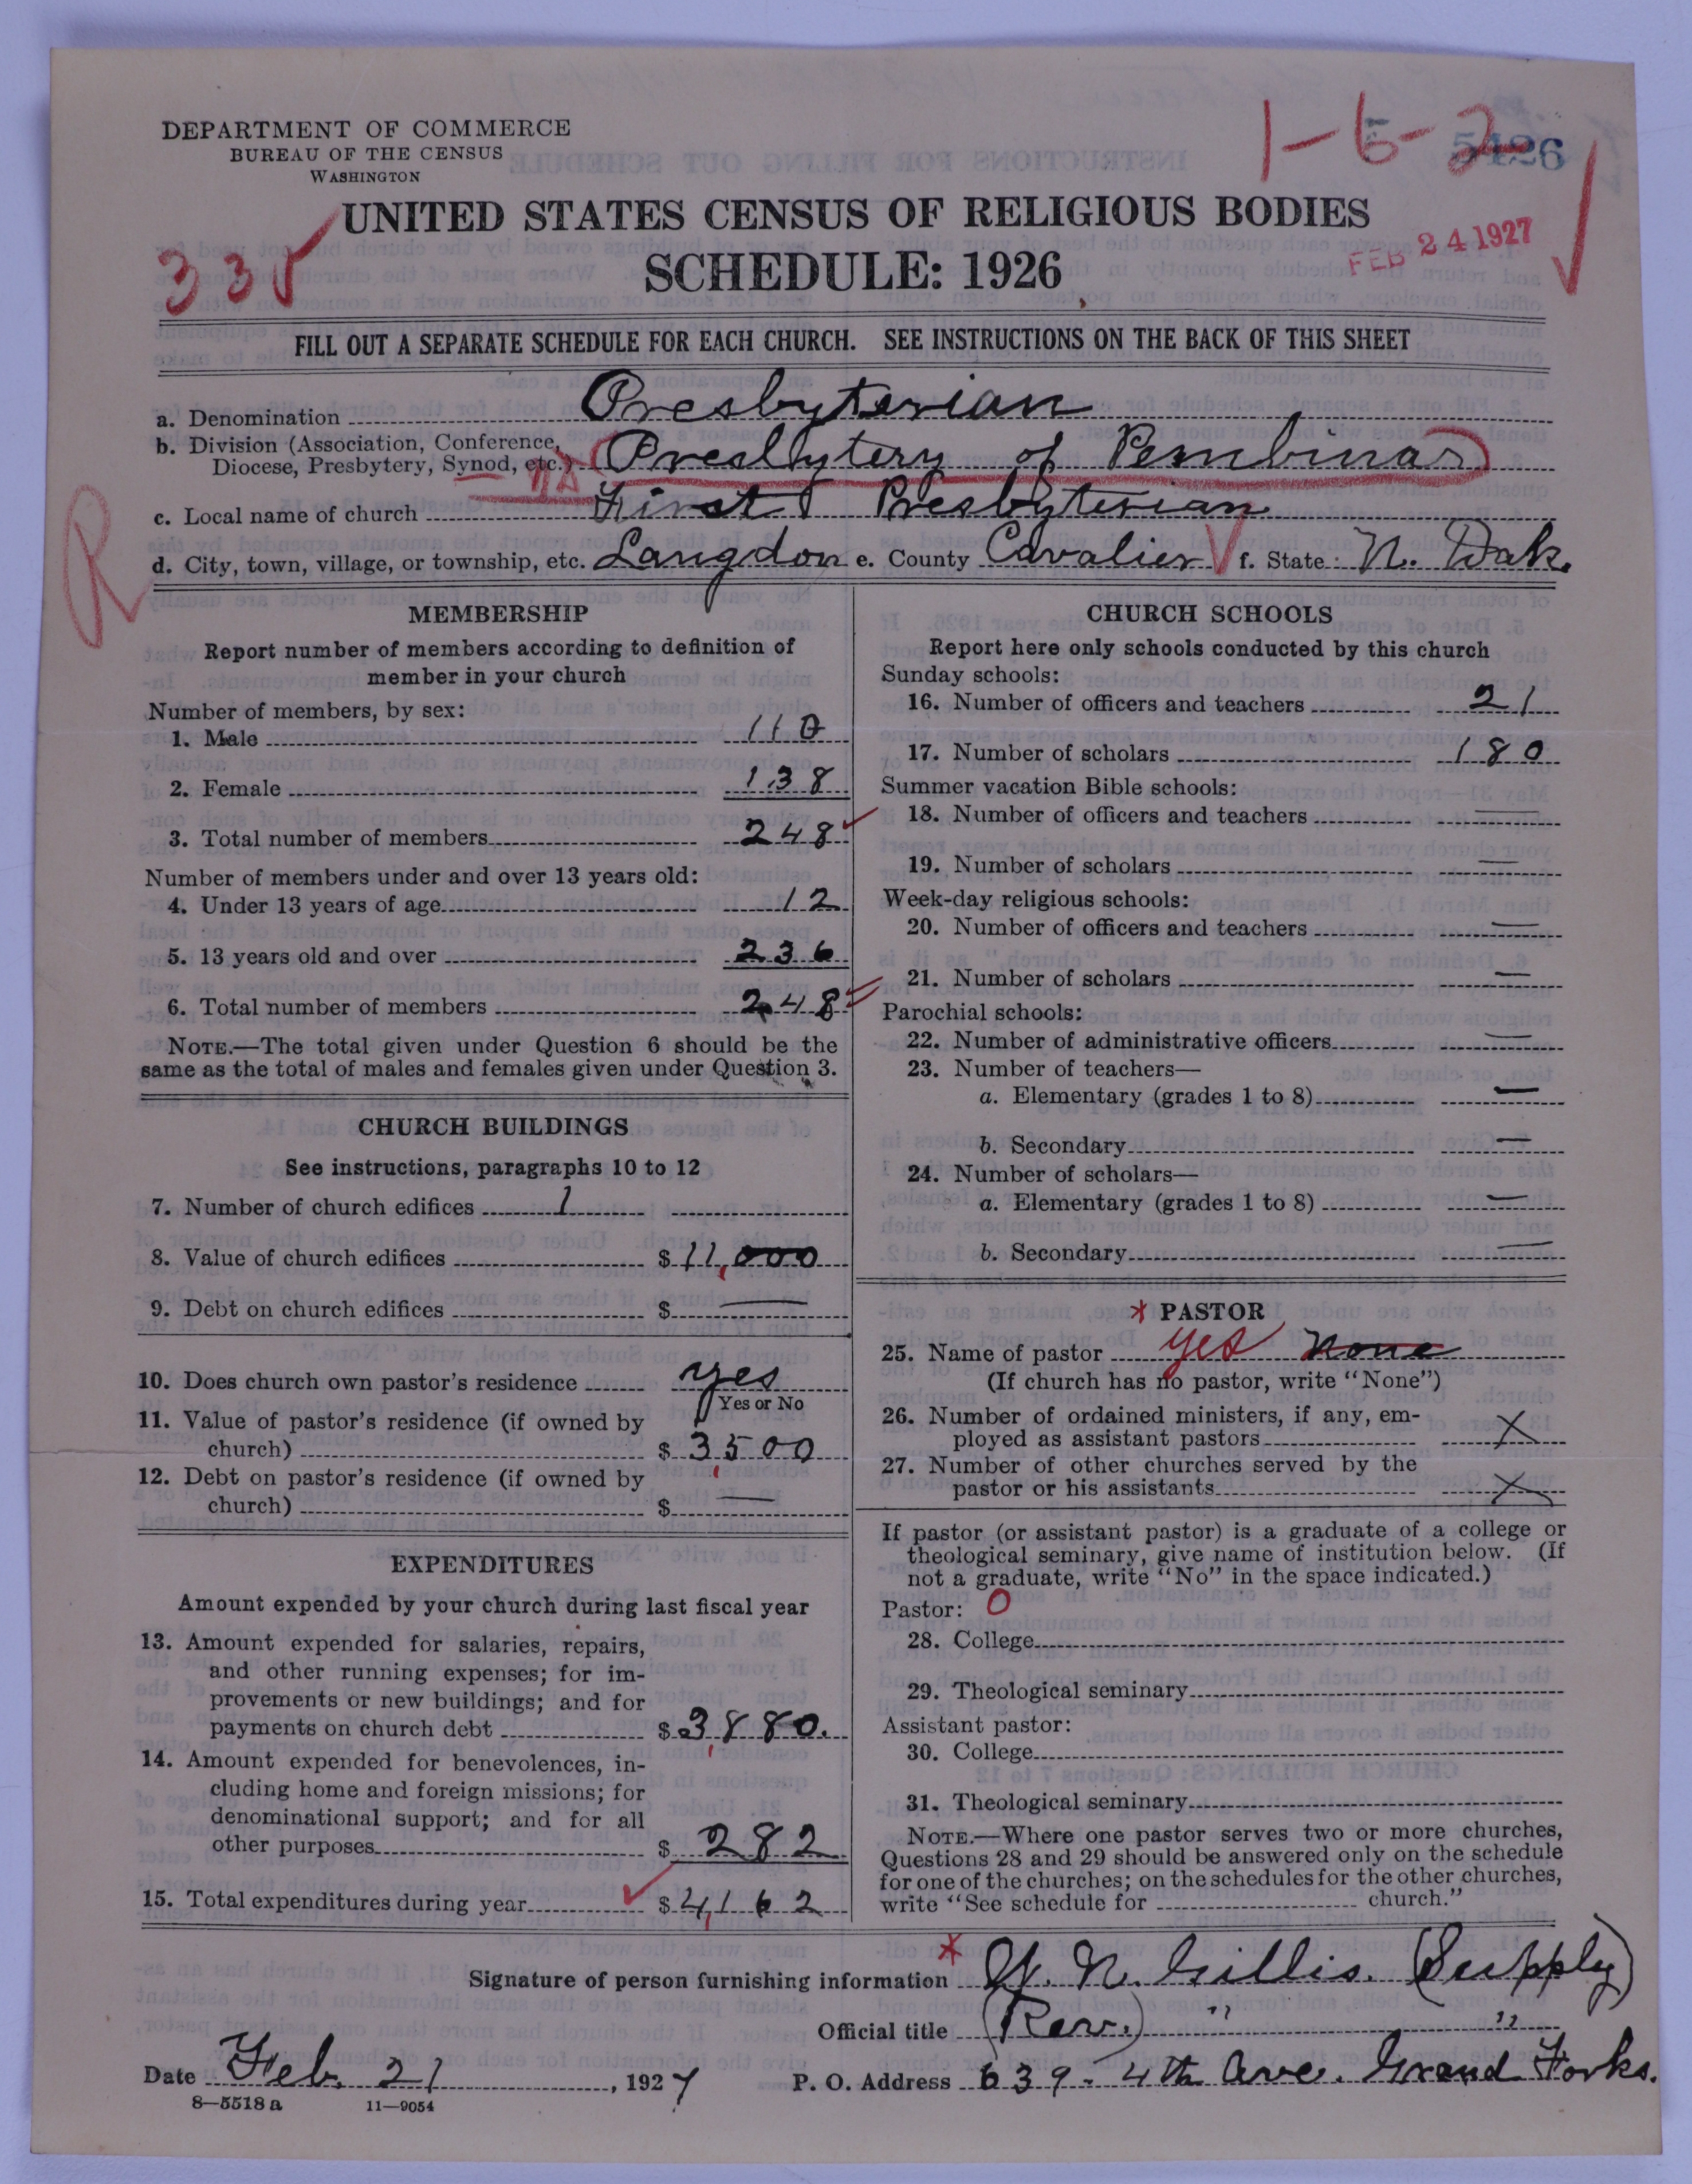 DEPARTMENT OF COMMERCE
BUREAU OF THE CENSUS
WASHINGTON
1-6-2
5426
UNITED STATES CENSUS OF RELIGIOUS BODIES
SCHEDULE: 1926
FEB 24 1927
FILL OUT A SEPARATE SCHEDULE FOR EACH CHURCH. SEE INSTRUCTIONS ON THE BACK OF THIS SHEET
a. Denomination Presbyterian
b. Division (Association, Conference,
Diocese, Presbytery, Synod, etc.) Presbytery of Pembina
c. Local name of church First Presbyterian
R
d. City, town, village, or township, etc. Langdon e. County Cavalier f. State N. Dak.
MEMBERSHIP
Report number of members according to definition of
member in your church
Number of members, by sex:
1. Male 110
2. Female 138
3. Total number of members 248
Number of members under and over 13 years old:
4. Under 13 years of age 12
5. 13 years old and over 236
6. Total number of members 248
NOTE.—The total given under Question 6 should be the
same as the total of males and females given under Question 3.
CHURCH BUILDINGS
See instructions, paragraphs 10 to 12
7. Number of church edifices 1
8. Value of church edifices $ 11,000
9. Debt on church edifices $ —
10. Does church own pastor's residence yes
Yes or No
11. Value of pastor's residence (if owned by
church) $ 3,500
12. Debt on pastor's residence (if owned by
church) $ —
EXPENDITURES
Amount expended by your church during last fiscal year
13. Amount expended for salaries, repairs,
and other running expenses; for im-
provements or new buildings; and for
payments on church debt $ 3,880.
14. Amount expended for benevolences, in-
cluding home and foreign missions; for
denominational support; and for all
other purposes $ 282
15. Total expenditures during year $ 4,162
CHURCH SCHOOLS
Report here only schools conducted by this church
Sunday schools:
16. Number of officers and teachers 21
17. Number of scholars 180
Summer vacation Bible schools:
18. Number of officers and teachers —
19. Number of scholars —
Week-day religious schools:
20. Number of officers and teachers —
21. Number of scholars —
Parochial schools:
22. Number of administrative officers —
23. Number of teachers—
a. Elementary (grades 1 to 8) —
b. Secondary —
24. Number of scholars—
a. Elementary (grades 1 to 8) —
b. Secondary —
* PASTOR
25. Name of pastor yes None
(If church has no pastor, write "None")
26. Number of ordained ministers, if any, em-
ployed as assistant pastors X
27. Number of other churches served by the
pastor or his assistants X
If pastor (or assistant pastor) is a graduate of a college or
theological seminary, give name of institution below. (If
not a graduate, write "No" in the space indicated.)
Pastor: O
28. College
29. Theological seminary
Assistant pastor:
30. College
31. Theological seminary
NOTE.—Where one pastor serves two or more churches,
Questions 28 and 29 should be answered only on the schedule
for one of the churches; on the schedules for the other churches,
write "See schedule for church."
Signature of person furnishing information * N. Gillis. (Supply)
Official title (Rev.) " "
Date Feb. 21, 1927 P. O. Address 639 - 4th Ave. Grand Forks.
8—5518a 11—9054